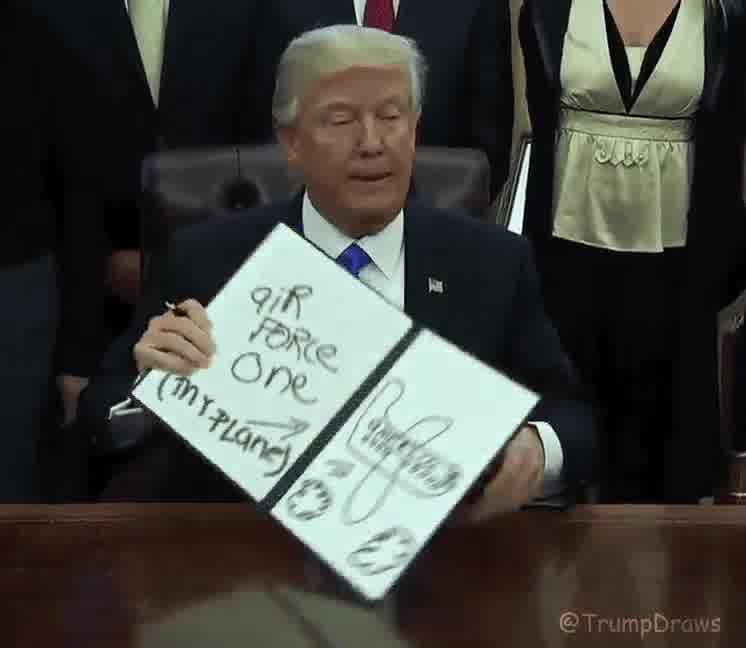 aiR
FORCE
one
(my PLane)
@TrumpDraws